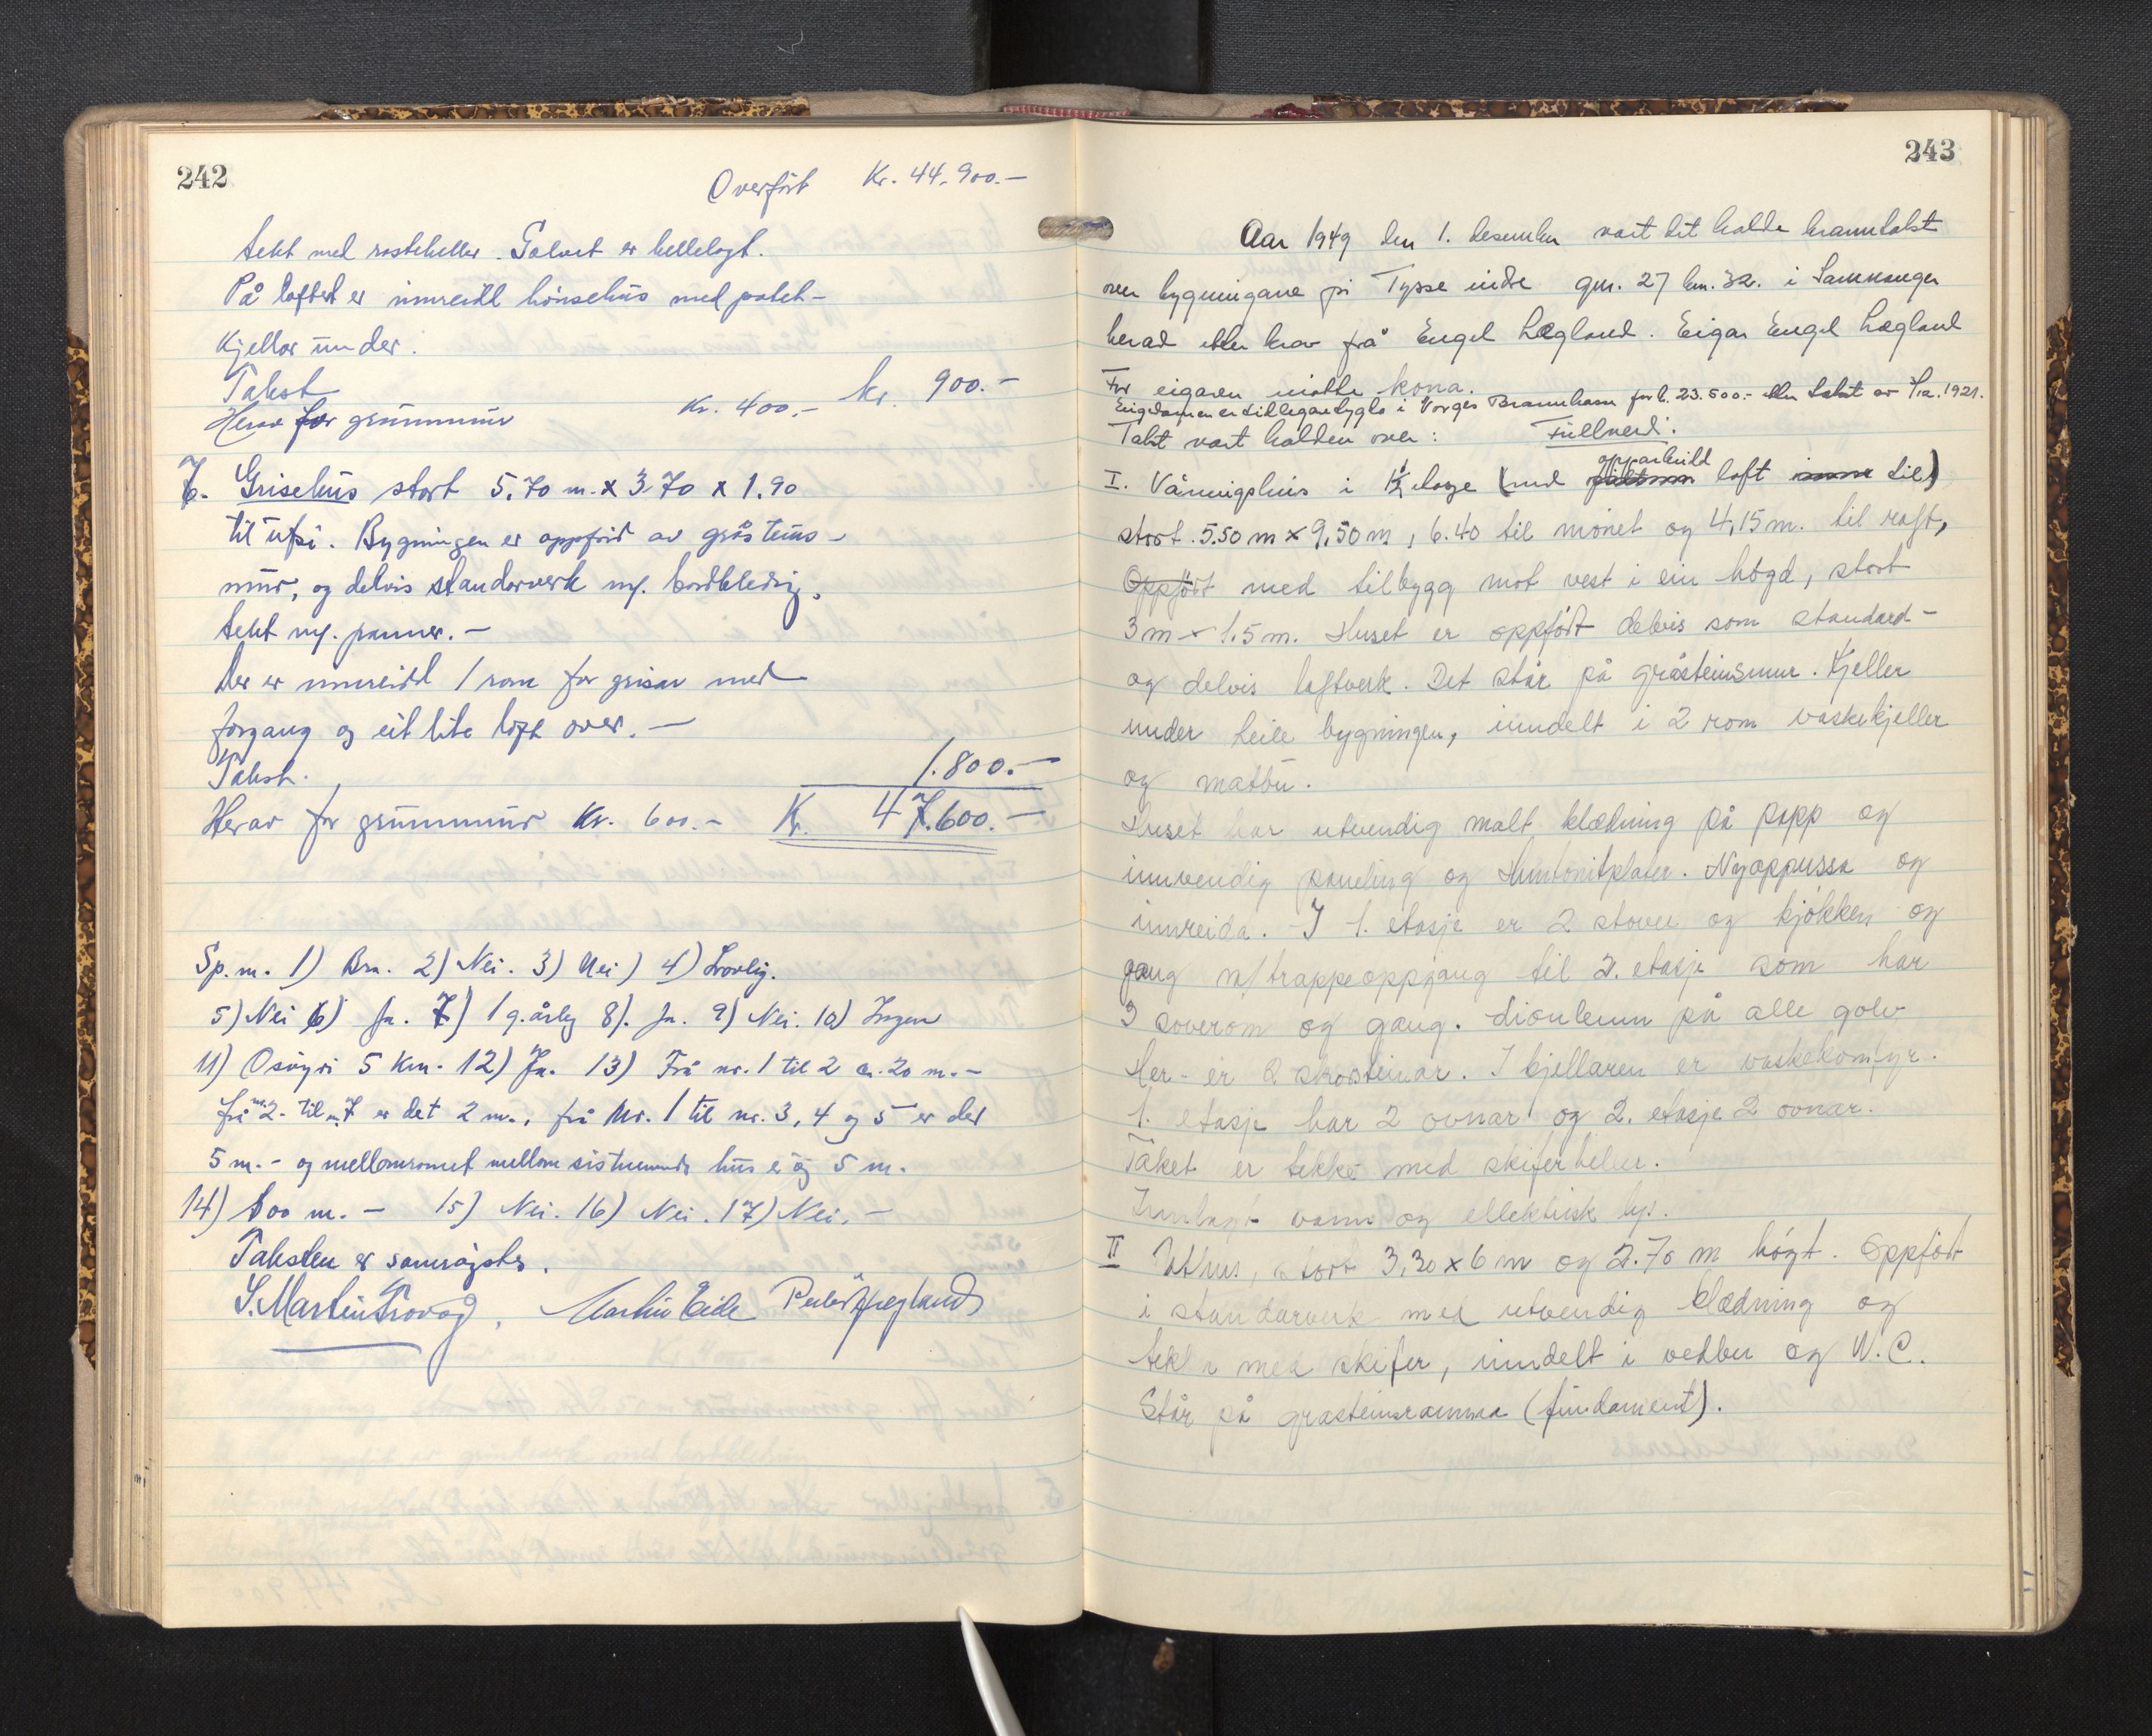 242
Overført Kr. 44.900.-
tekt med rasteheller. Golvet er hellelagt.
På loftet er innreidd hönsehus med potet-
kjellar under.
Takst kr. 900.-
Herav for grunnmur Kr. 400.-
7. Grisehus stort 5.70 m. x 3.70 x 1.90
til ufsi. Bygningen er oppförd av gråsteins-
mur, og delvis standarverk m/. bordklednig.
tekt m/. panner. -
Der er innreidd 1 rom for grisar med
forgang og eit lite loft over. -
Takst. 1.800.-
Herav for grunnmur Kr. 600.- Kr. 47.600.-
Sp.m. 1) Bra. 2) Nei. 3) Nei) 4) Lovlig.
5) Nei 6) Ja. 7) 1 g. årleg 8). Ja. 9) Nei. 10) Ingen
11) Osöyri 5 Km. 12) Ja. 13) Frå nr. 1 til 2 ca. 20 m. -
frå nr. 2. til nr. 7 er det 2 m., frå Nr. 1 til nr. 3, 4 og 5 er det
5 m. - og mellomromet mellom sistnemnde hus er og 5 m.
14) 600 m. - 15) Nei. 16) Nei. 17) Nei. -
Taksten er samröystes.
S. Martin Trovåg, Martin Eide Peder
243
Aar 1949 den 1. desember vart det halde branntakst
over bygningane på Tysse indre gnr. 27 bnr. 32. i Samnanger
herad etter krav frå Engel Lægland. Eigar Engel Lægland
For eigaren møtte kona.
Eigedomen er tillegare bygla i Norges Brannkasse for kr. 23.500.- etter takst av 1921.
Takst vart halden over: Fullverd:
opparbeidd
I. Våningshus i 1½ etasje (med loft til)
stort. 5.50 m x 9,50 m, 6.40 til mönet og 4,15 m. til raft,
Oppfört med tilbygg mot vest i ein högd, stort
3 m x 1.5 m. Huset er oppfört delvis som standard-
og delvis laftverk. Det står på gråsteinsmur. Kjeller
under heile bygningen, inndelt i 2 rom vaskekjeller
og matbu.
Huset har utvendig malt klædning på papp og
innvendig paneling og Huntonitplater. Nyoppussa og
innreida. I 1. etasje er 2 stover og kjökken og
gang m/ trappeoppgang til 2. etasje som har
3 soverom og gang. Linoleum på alle golv
Her er 2 skorsteinar. I kjellaren er vaskekomfyr.
1. etasje har 2 ovnar og 2. etasje 2 ovnar.
Taket er tekke med skiferheller.
Innlagt vann og ellektrisk lys.
II Uthus, stort 3,30 x 6 m og 2.70 m högt. Oppfört
i standarverk med utvendig klædning og
tekka med skifer, inndelt i vedbu og W.C.
Står på gråsteinsramma (fundament).